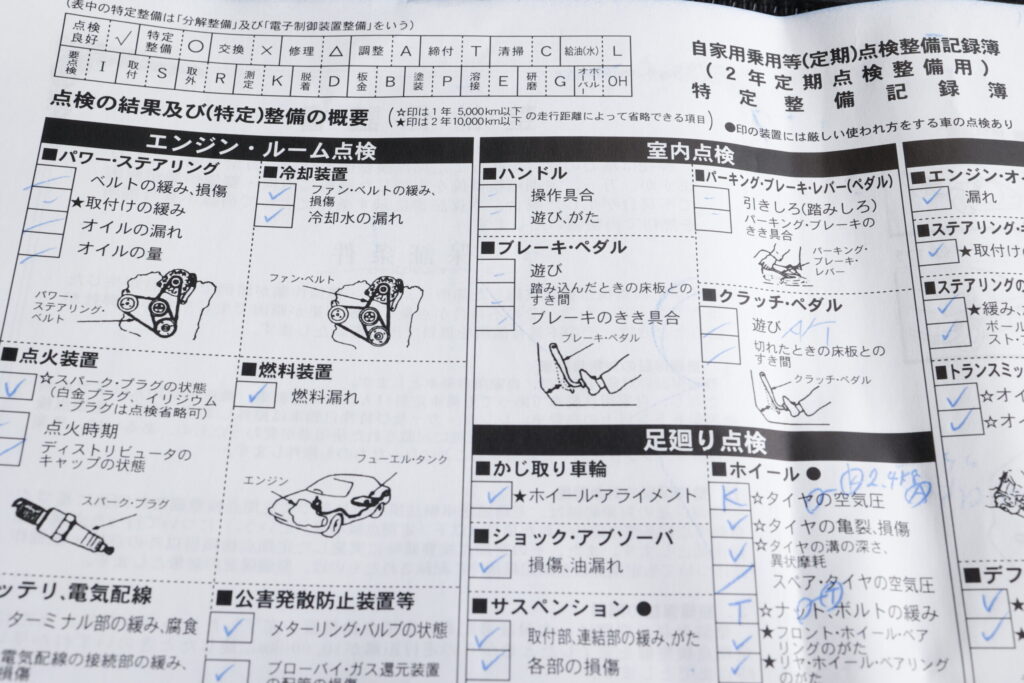 (表中の特定整備は「分解整備」及び「電子制御装置整備」をいう)
点検良好 ✓ 特定整備 ○ 交換 × 修理 △ 調整 A 締付 T 清掃 C 給油(水) L
要点検 I 取付 S 取外 R 測定 K 脱着 D 板金 B 塗装 P 溶接 E 研磨 G オーバーホール OH
自家用乗用等(定期)点検整備記録簿
(2年定期点検整備用)
特定整備記録簿
点検の結果及び(特定)整備の概要
(☆印は1年 5,000km以下
★印は2年10,000km以下 の走行距離によって省略できる項目)
●印の装置には厳しい使われ方をする車の点検あり
エンジン・ルーム点検
■パワー・ステアリング
ベルトの緩み、損傷
★取付けの緩み
オイルの漏れ
オイルの量
パワー・
ステアリング・
ベルト
■冷却装置
ファン・ベルトの緩み、
損傷
冷却水の漏れ
ファン・ベルト
■点火装置
☆スパーク・プラグの状態
(白金プラグ、イリジウム
・プラグは点検省略可)
点火時期
ディストリビュータの
キャップの状態
スパーク・プラグ
■燃料装置
燃料漏れ
フューエル・タンク
エンジン
ッテリ、電気配線
ターミナル部の緩み、腐食
電気配線の接続部の緩み、
損傷
■公害発散防止装置等
メターリング・バルブの状態
ブローバイ・ガス還元装置
の配管の損傷
室内点検
■ハンドル
操作具合
遊び、がた
■ブレーキ・ペダル
遊び
踏み込んだときの床板との
すき間
ブレーキのきき具合
ブレーキ・ペダル
■パーキング・ブレーキ・レバー(ペダル)
引きしろ(踏みしろ)
パーキング・ブレーキの
きき具合
パーキング・
ブレーキ・
レバー
■クラッチ・ペダル
遊び A/T
切れたときの床板との
すき間
クラッチ・ペダル
足廻り点検
■かじ取り車輪
★ホイール・アライメント
■ショック・アブソーバ
損傷、油漏れ
■サスペンション●
取付部、連結部の緩み、がた
各部の損傷
■ホイール●
K ☆タイヤの空気圧
☆タイヤの亀裂、損傷
☆タイヤの溝の深さ、
異状摩耗
スペア・タイヤの空気圧
T ☆ナット、ボルトの緩み
★フロント・ホイール・ベア
リングのがた
★リヤ・ホイール・ベアリング
のがた
■エンジン・オ
漏れ
■ステアリング・ギ
★取付け
■ステアリングの
★緩み、
ボール
スト・
■トランスミッ
☆オイ
☆オイ
■デフ